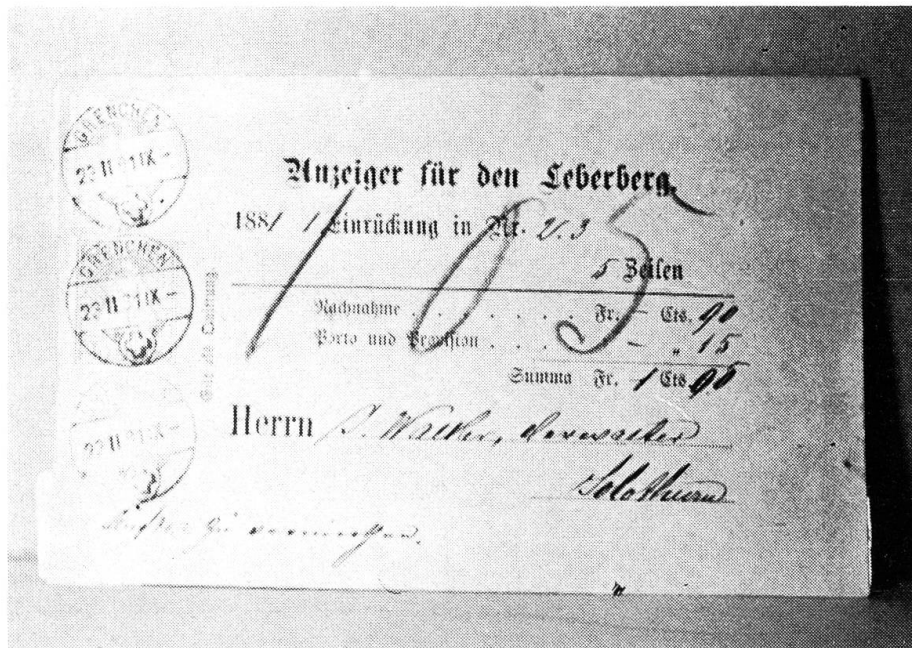 GRENCHEN
23 II 81 IX –
GRENCHEN
23 II 81 IX –
23 II 81 IX –
Gilt als Quittung
Anzeiger für den Leberberg.
1881 1 Einrückung in Nr. 2/3
5 Zeilen
105
Nachnahme . . . . . . . Fr. – Cts. 90
Porto und Provision . . . . – „ 15
Summa Fr. 1 Cts. 05
Herrn Walker, Verwalter
Solothurn
zu